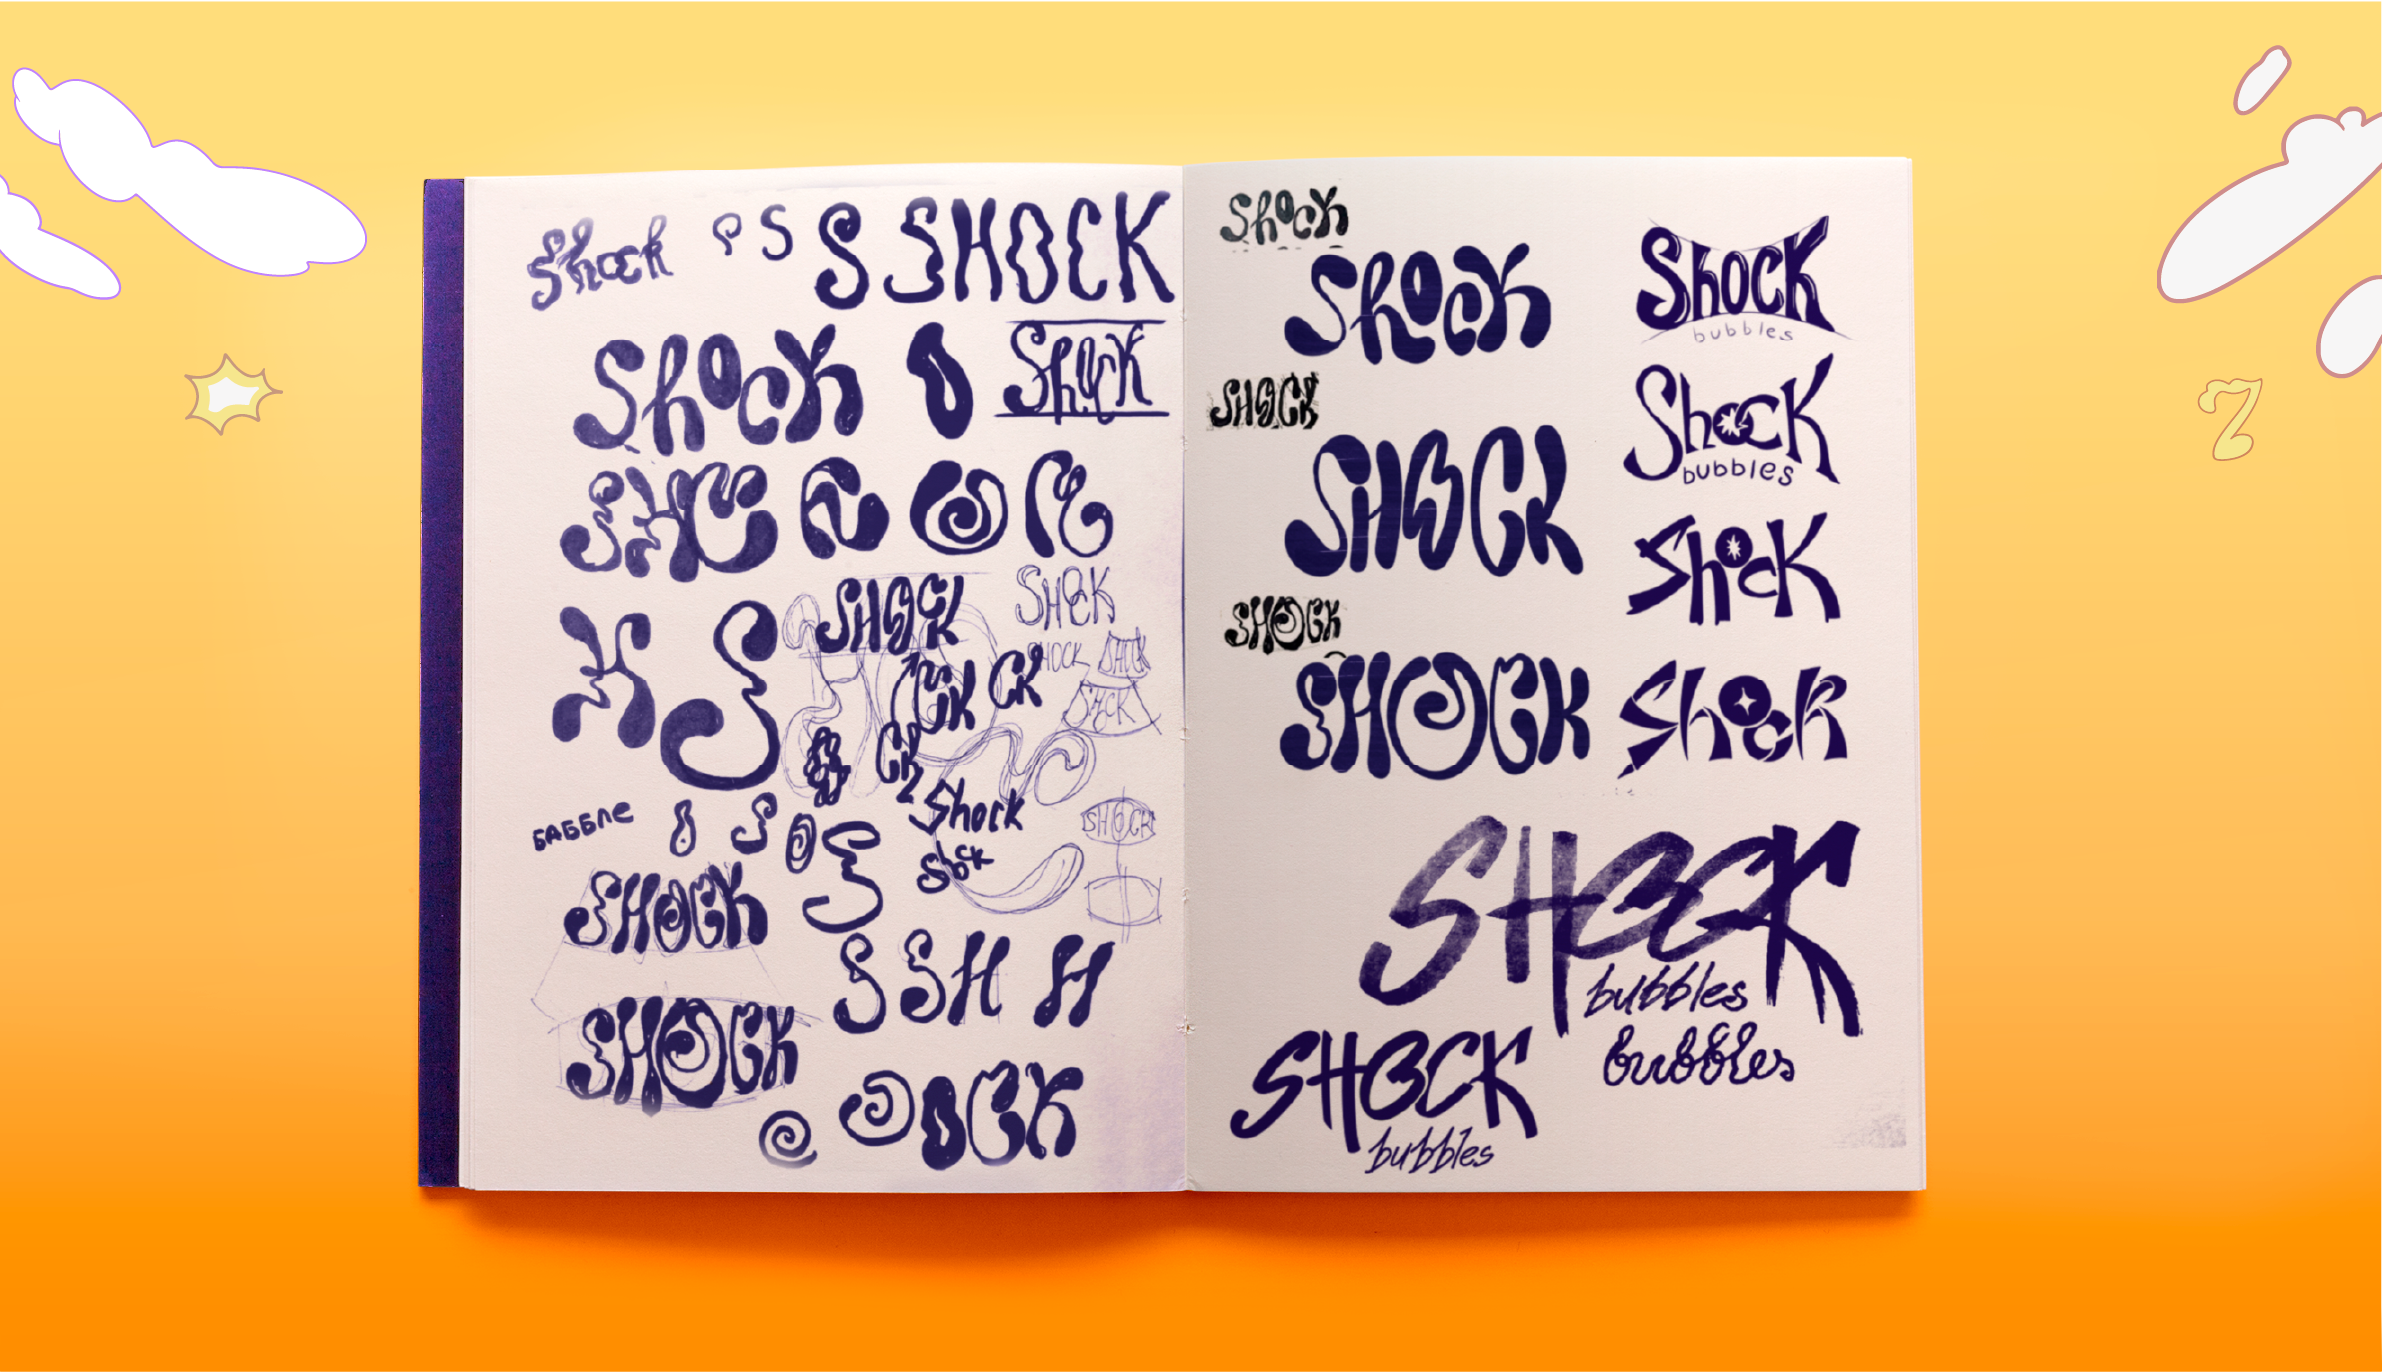 Shock S S SHOCK
Shock Shock
SHOCK
SHOCK
H S
SHOCK
SHOCK
CK
CK
CK
Shock
баббле
Shock
SHOCK
SHOCK
S S H H
SHOCK
OCK
Shock
Shock
SHOCK
SHOCK
SHOCK
SHOCK
Shock
bubbles
Shock
bubbles
Shock
Shock
SHOCK
bubbles
bubbles
SHOCK
bubbles
7